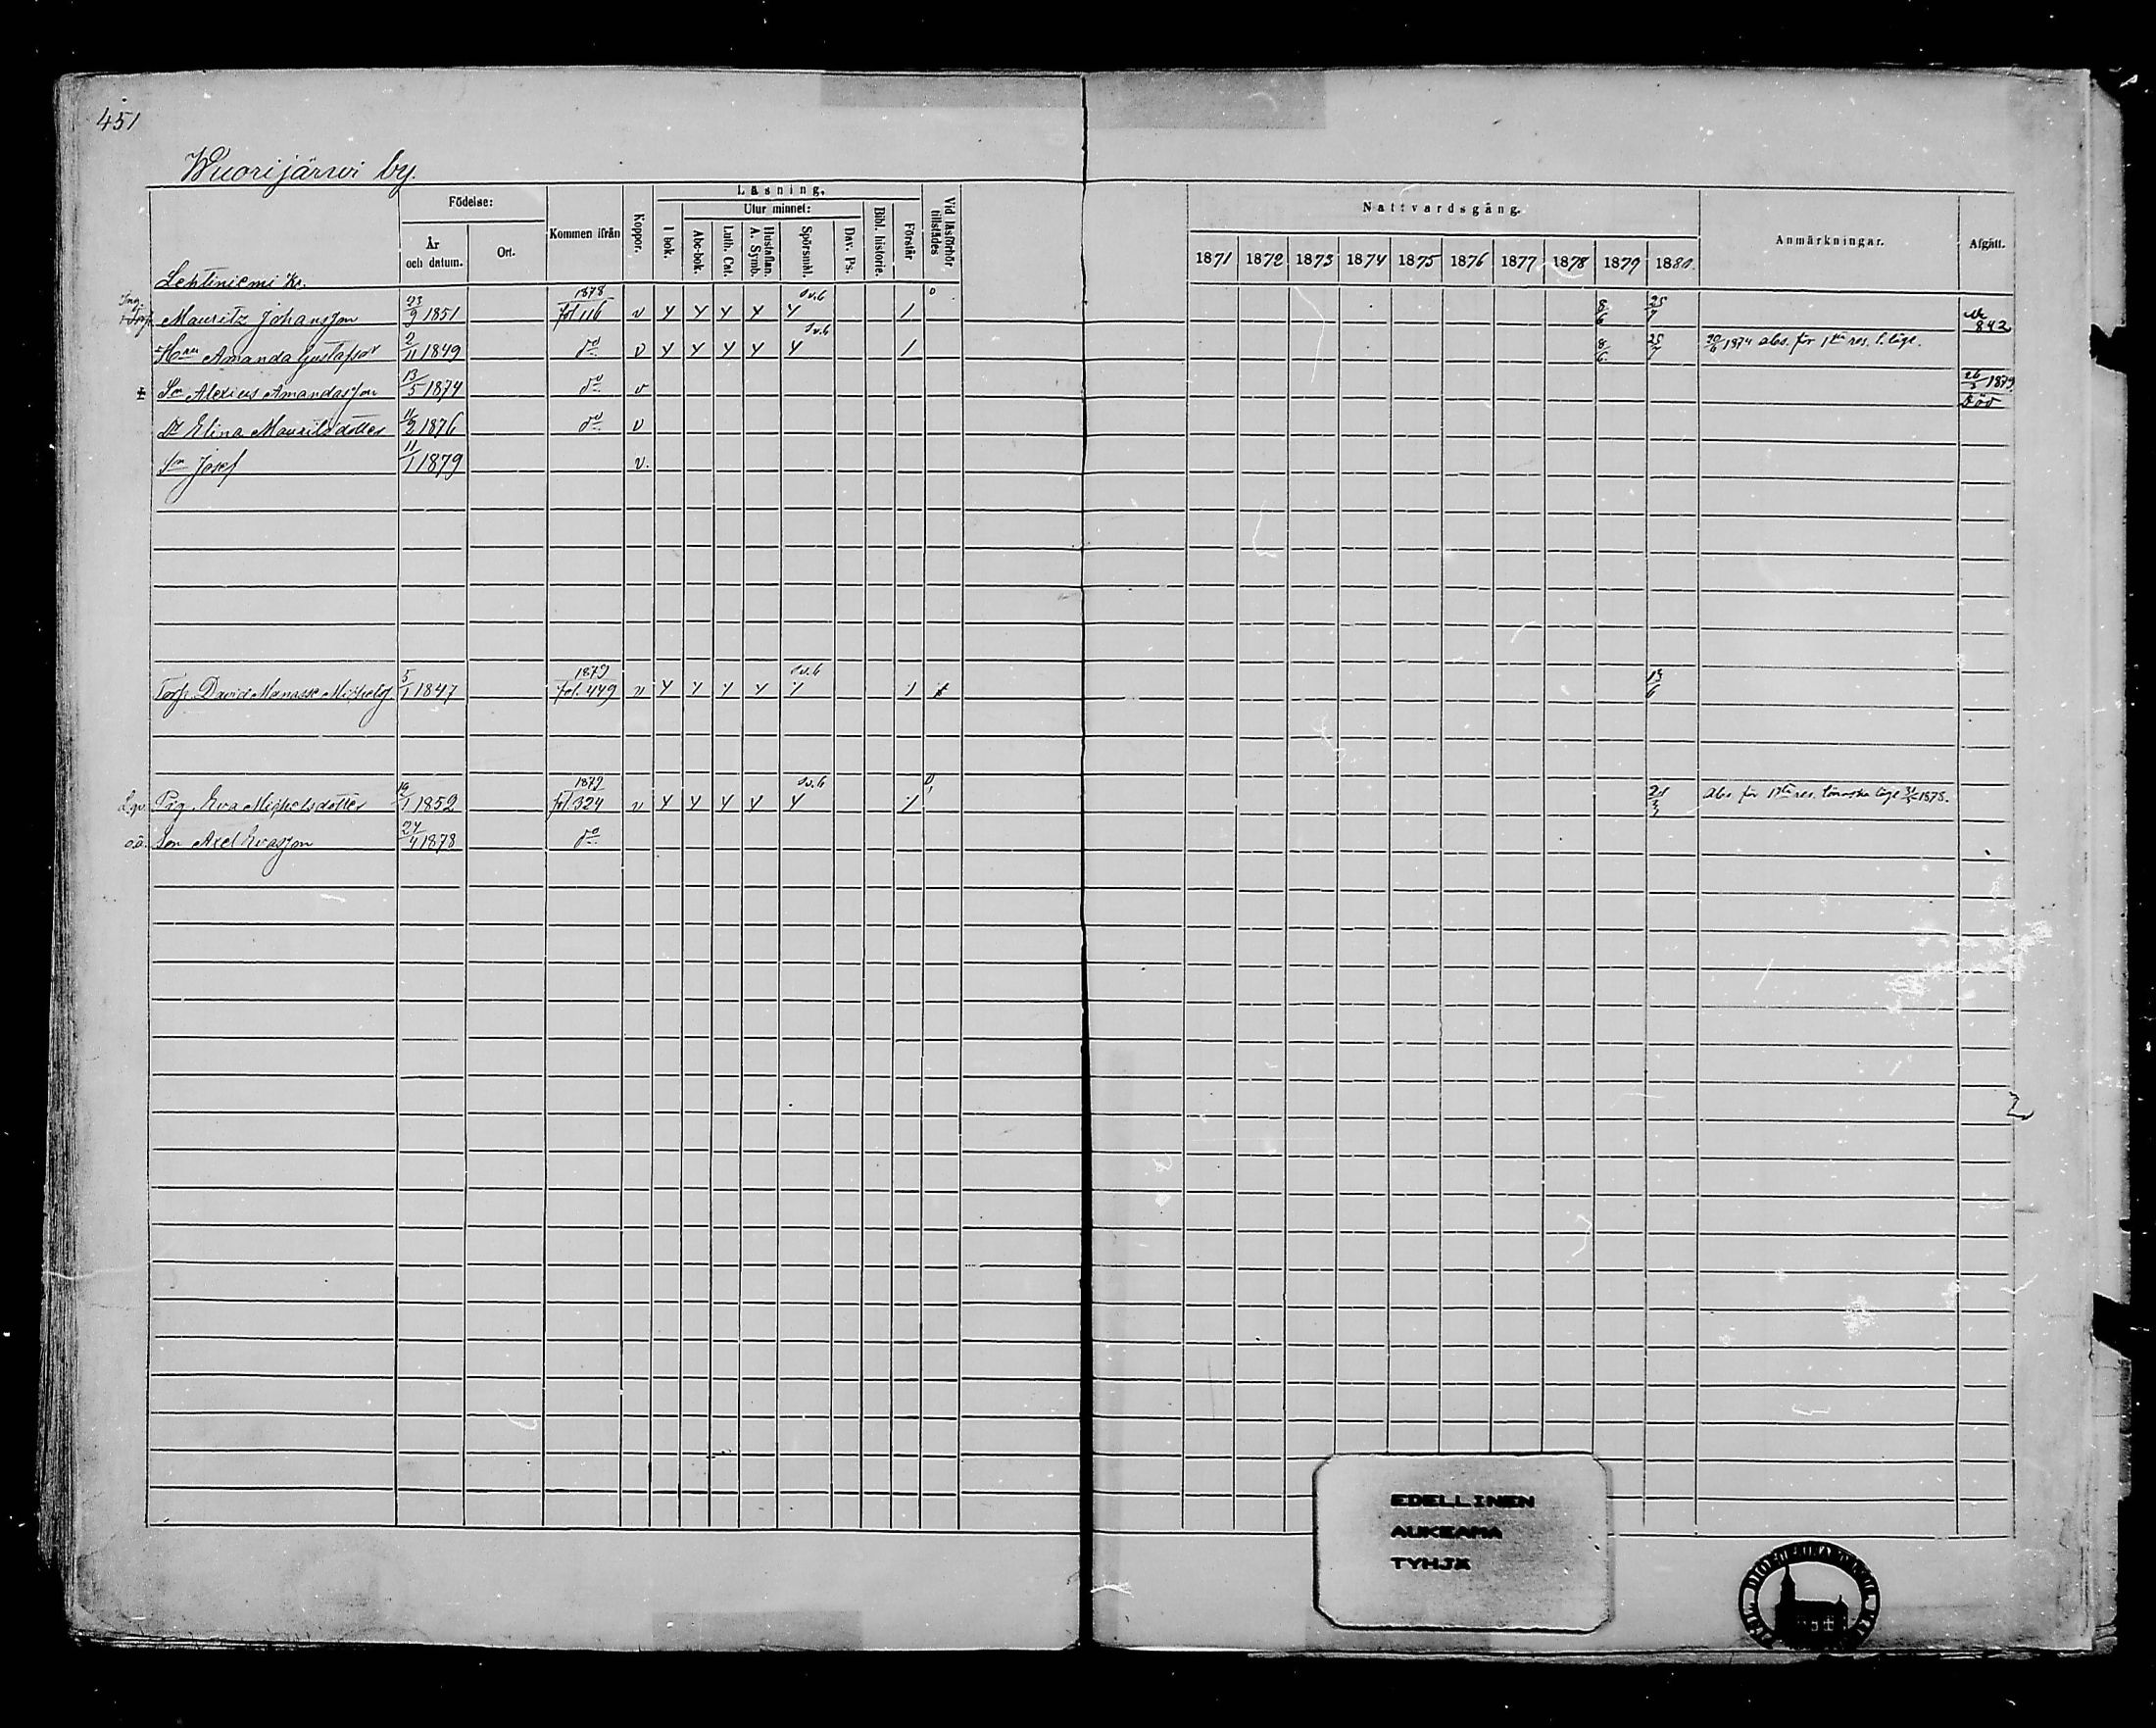 451
Wuorijärwi by.
Födelse:
År och datum.
Ort.
Kommen ifrån
Koppor.
Läsning.
I bok.
Utur minnet:
Abc-bok.
Luth. Cat.
Hustaflan. A. Symb.
Spörsmål.
Dav. Ps.
Bibl. historie.
Förstår
Vid läsförhör tillstädes
Nattvardsgång.
1871 1872 1873 1874 1875 1876 1877 1878 1879 1880.
Anmärkningar.
Afgått.
Lehtiniemi
Mauritz Johansson 23/9 1851 1878 fol 116 v y y y y y 1 8/6 25/7 842
Amanda Gustafsd 2/11 1849 do v y y y y y 1 8/6 25/7 30/6 1874 abs. för 1sta res. l. läge.
Sn Alexius Amandasson 13/5 1874 do v 26/3 1879 död
Dr Elina Mauritsdotter 11/2 1876 do v
Sn Josef 11/1 1879 v.
Torp. David Manasse Michelss 5/1 1847 1879 fol. 449 v y y y y y 1 13/6
Pig. Eva Michelsdotter 19/1 1852 1879 fol 324 v y y y y y 1 21/3 abs för 1sta res. lönska läge 31/3 1878.
o.ä. Son Axel Evasson 24/4 1878 do
EDELLINEN
AUKEAMA
TYHJÄ